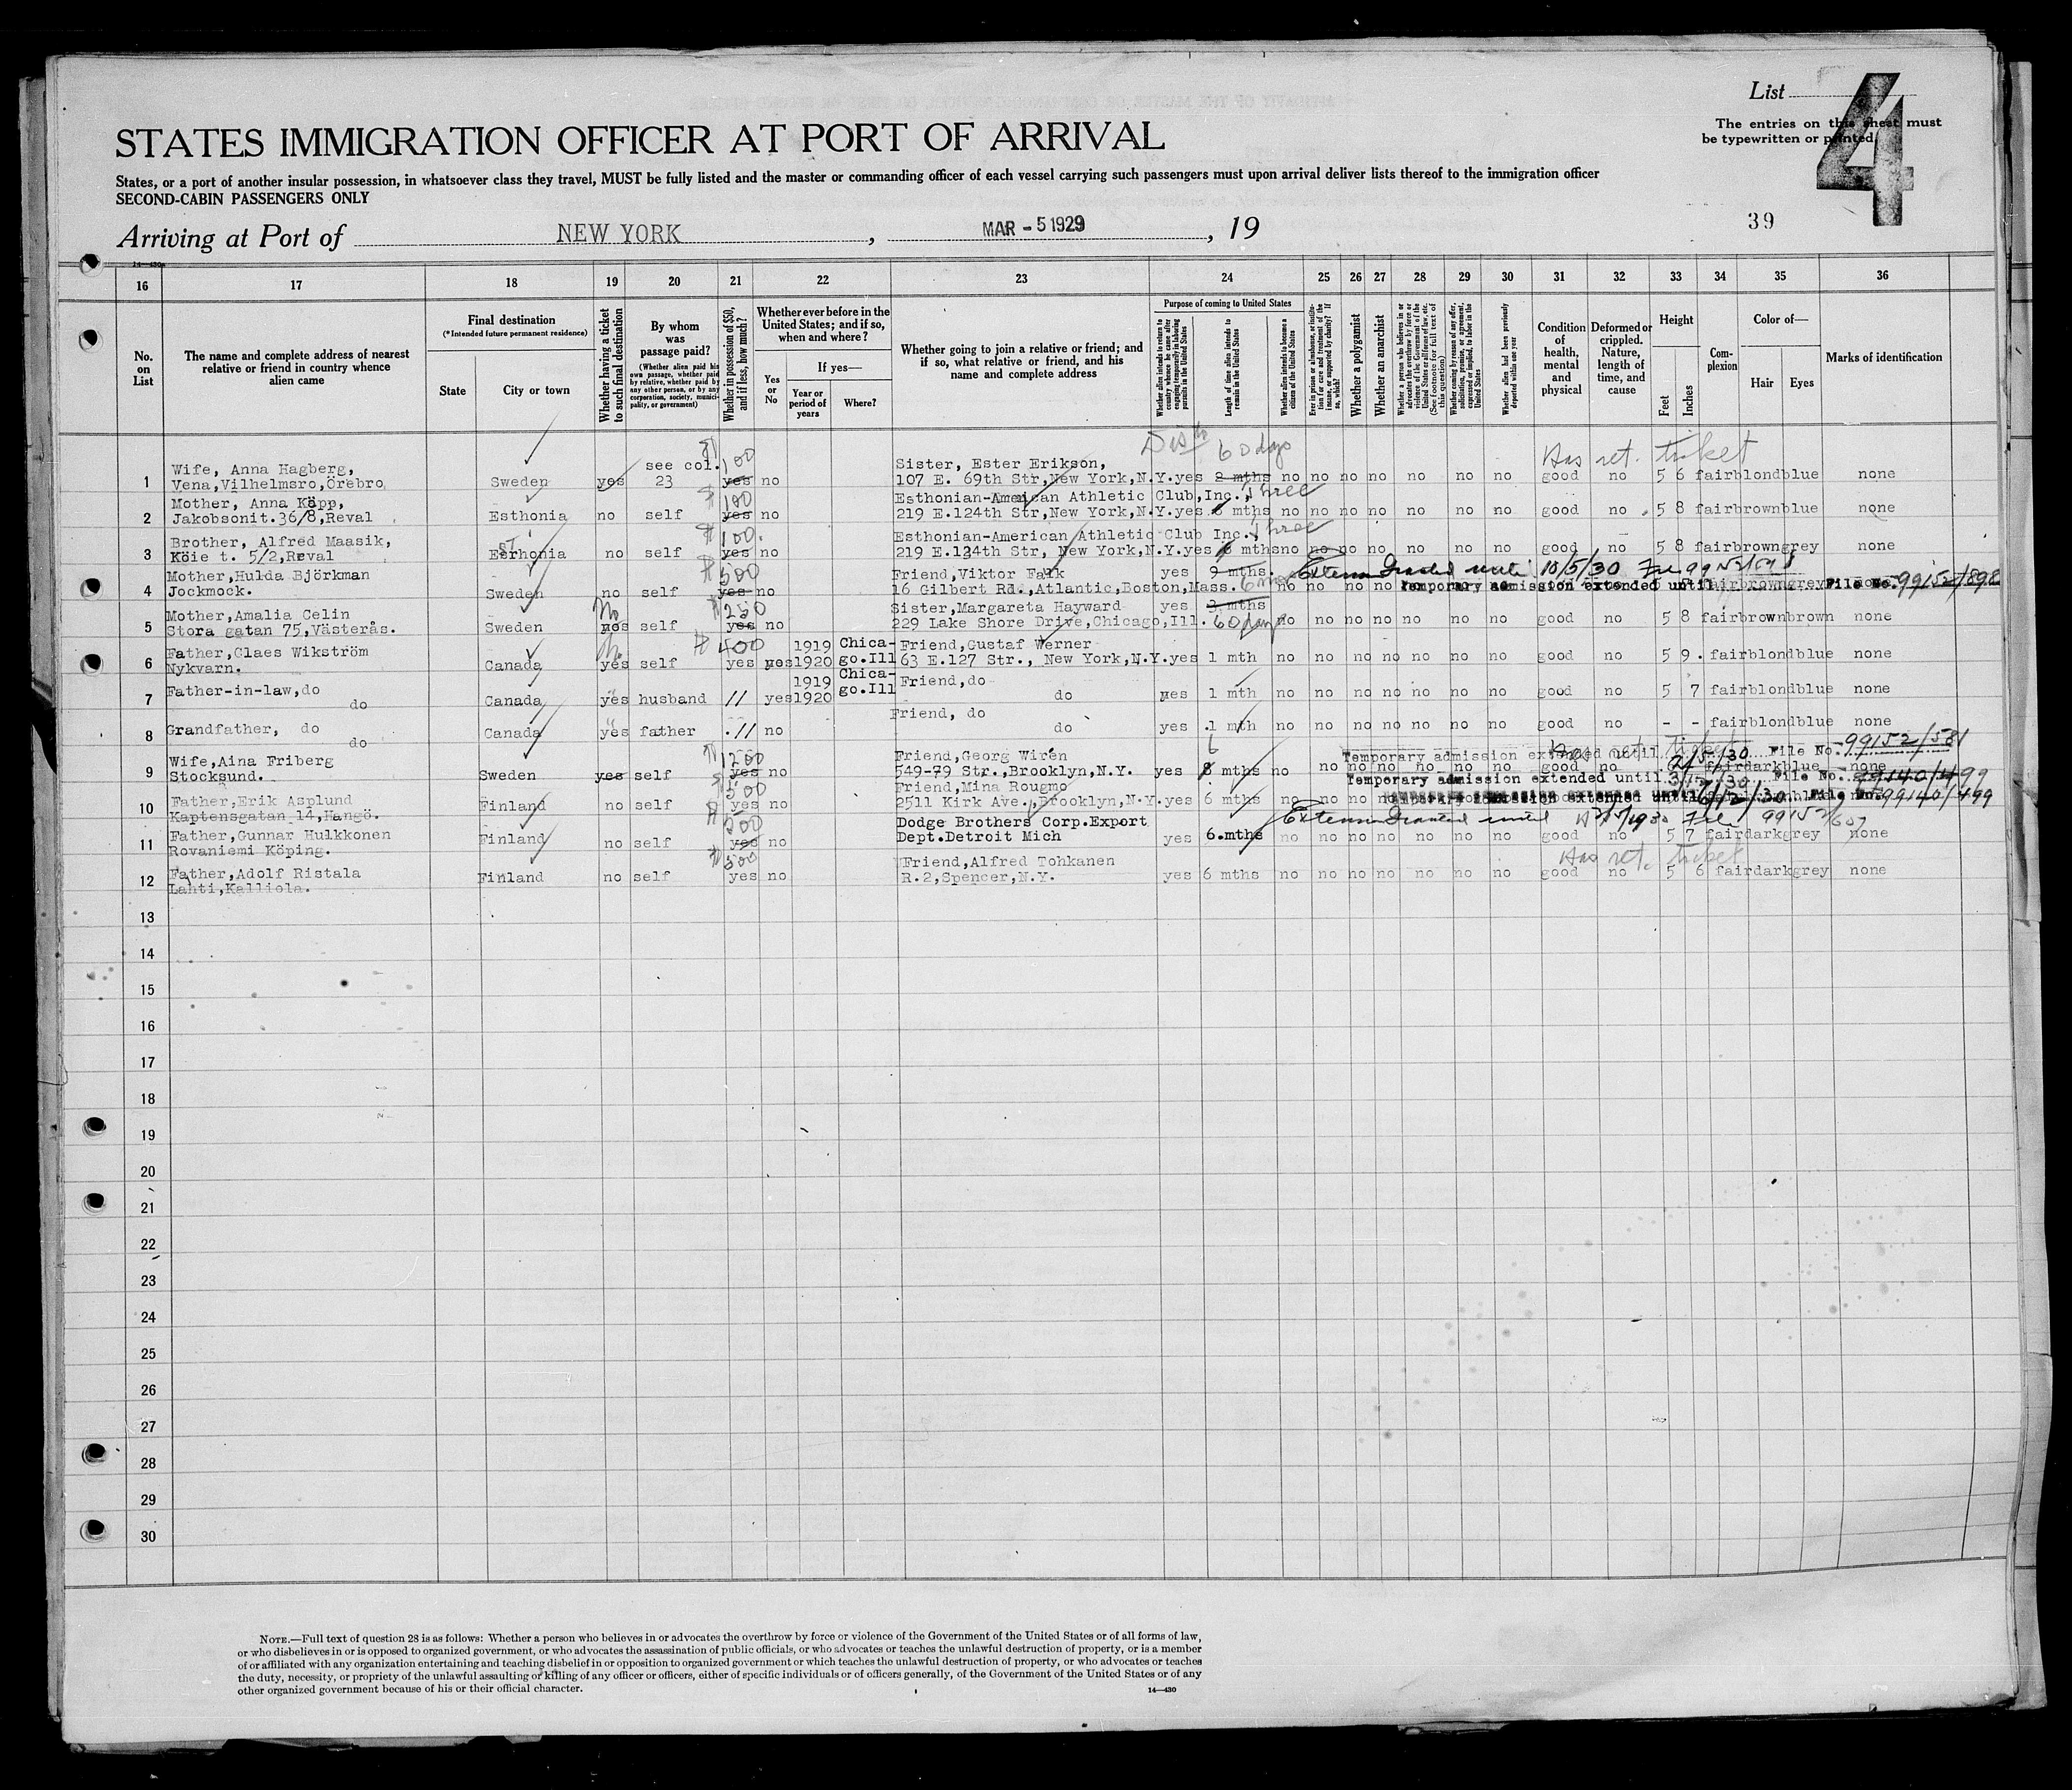 List
4
The entries on this sheet must
be typewritten or printed
STATES IMMIGRATION OFFICER AT PORT OF ARRIVAL
States, or a port of another insular possession, in whatsoever class they travel, MUST be fully listed and the master or commanding officer of each vessel carrying such passengers must upon arrival deliver lists thereof to the immigration officer
SECOND-CABIN PASSENGERS ONLY
39
Arriving at Port of NEW YORK, MAR -5 1929, 19
14—430
16 17 18 19 20 21 22 23 24 25 26 27 28 29 30 31 32 33 34 35 36
No. on List
The name and complete address of nearest relative or friend in country whence alien came
Final destination
(*Intended future permanent residence)
State
City or town
Whether having a ticket to such final destination
By whom was passage paid?
(Whether alien paid his own passage, whether paid by relative, whether paid by any other person, or by any corporation, society, municipality, or government)
Whether in possession of $50, and if less, how much?
Whether ever before in the United States; and if so, when and where?
Yes or No
If yes—
Year or period of years
Where?
Whether going to join a relative or friend; and if so, what relative or friend, and his name and complete address
Purpose of coming to United States
Whether alien intends to return to country whence he came after engaging temporarily in laboring pursuits in the United States
Length of time alien intends to remain in the United States
Whether alien intends to become a citizen of the United States
Whether a polygamist
Whether an anarchist
Whether alien had been previously deported within one year
Condition of health, mental and physical
Deformed or crippled. Nature, length of time, and cause
Height
Feet
Inches
Complexion
Color of—
Hair
Eyes
Marks of identification
60 days Has ret. ticket
1 Wife, Anna Hagberg, see col. 100 Sister, Ester Erikson,
Vena,Vilhelmsro,Örebro Sweden yes 23 yes no 107 E. 69th Str,New York,N.Y. yes 2 mths no no no no no no no good no 5 6 fair blond blue none
2 Mother, Anna Köpp, $100 Esthonian-American Athletic Club,Inc. three
Jakobsonit.36/8,Reval Esthonia no self yes no 219 E.124th Str,New York,N.Y. yes 6 mths no no no no no no no good no 5 8 fair brown blue none
3 Brother, Alfred Maasik, $100. Esthonian-American Athletic Club Inc. three
Köie t. 5/2,Reval Esthonia no self yes no 219 E.124th Str, New York,N.Y. yes 6 mths no no no no no no no good no 5 8 fair brown grey none
4 Mother,Hulda Björkman $500 Friend,Viktor Falk yes 9 mths. Extension Granted until 10/5/30
Jockmock. Sweden no self yes no 16 Gilbert Rd.,Atlantic,Boston,Mass. no no no no Temporary admission extended until File No. 99152/898
5 Mother,Amalia Celin No $250 Sister,Margareta Hayward yes 3 mths
Stora gatan 75,Västerås. Sweden yes self yes no 229 Lake Shore Drive,Chicago,Ill. 60 days no no no no no no no good no 5 8 fair brown brown none
6 Father,Claes Wikström No $400 1919 Chica- Friend,Gustaf Werner
Nykvarn. Canada yes self yes yes 1920 go.Ill 63 E.127 Str., New York,N.Y. yes 1 mth no no no no no no no good no 5 9 fair blond blue none
7 Father-in-law,do 1919 Chica- Friend,do
do Canada yes husband // yes 1920 go.Ill do yes 1 mth no no no no no no no good no 5 7 fair blond blue none
8 Grandfather, do Friend, do
do Canada yes father // no do yes 1 mth no no no no no no no good no - - fair blond blue none
9 Wife,Aina Friberg $1200 Friend,Georg Wirén 6 Temporary admission extended until 2/5/30 File No. 99152/581
Stocksund. Sweden yes self yes no 549-79 Str.,Brooklyn,N.Y. yes 8 mths no no no no no no no good no fair dark blue none
10 Father,Erik Asplund $500 Friend,Mina Rougmo Temporary admission extended until File No. 99140/499
Kaptensgatan 14,Hangö. Finland no self yes no 2511 Kirk Ave.,Brooklyn,N.Y. yes 6 mths no no no no File No. 99140/499
11 Father,Gunnar Hulkkonen $500 Dodge Brothers Corp.Export Extension Granted until
Rovaniemi Köping. Finland no self yes no Dept.Detroit Mich yes 6 mths no no no no no no no good no 5 7 fair dark grey none
Has ret. ticket
12 Father,Adolf Ristala $500 Friend,Alfred Tohkanen
Lahti,Kalliola. Finland no self yes no R.2,Spencer,N.Y. yes 6 mths no no no no no no no good no 5 6 fair dark grey none
13
14
15
16
17
18
19
20
21
22
23
24
25
26
27
28
29
30
NOTE.—Full text of question 28 is as follows: Whether a person who believes in or advocates the overthrow by force or violence of the Government of the United States or of all forms of law,
or who disbelieves in or is opposed to organized government, or who advocates the assassination of public officials, or who advocates or teaches the unlawful destruction of property, or is a member
of or affiliated with any organization entertaining and teaching disbelief in or opposition to organized government or which teaches the unlawful destruction of property, or who advocates or teaches
the duty, necessity, or propriety of the unlawful assaulting or killing of any officer or officers, either of specific individuals or of officers generally, of the Government of the United States or of any
other organized government because of his or their official character.
14—430